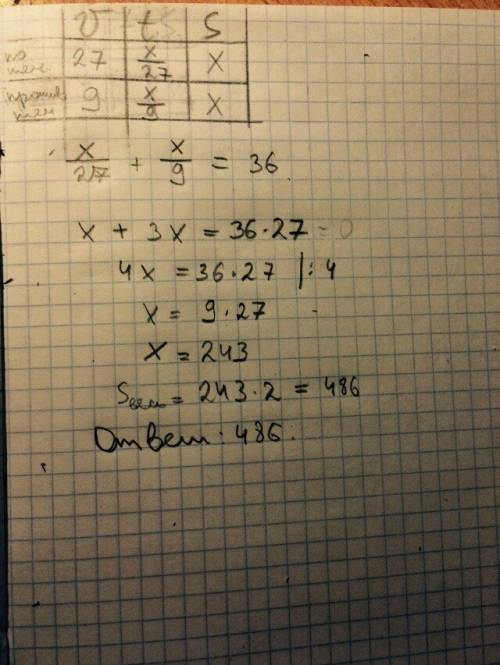 v t S
по теч 27 x/27 x
против теч 9 x/9 x
x/27 + x/9 = 36
x + 3x = 36·27 = 0
4x = 36·27 |: 4
x = 9·27
x = 243
S = 243·2 = 486
Ответ: 486.